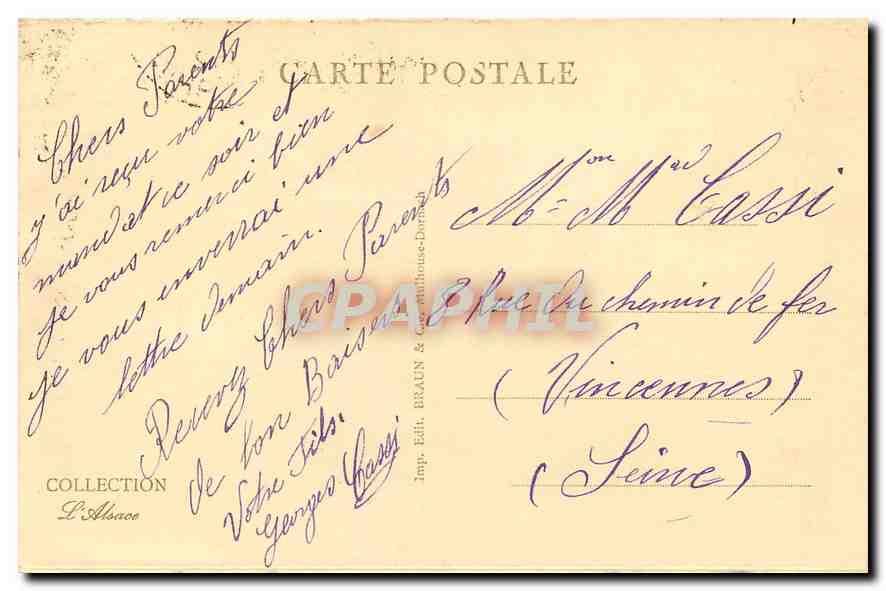 CARTE POSTALE
Chers Parents
j'ai reçu votre
mandat ce soir et
je vous remerci bien
je vous enverrai une
lettre demain.
Recevez Chers Parents
de bon Baisers
Votre Fils.
Georges Cassi
COLLECTION
L'Alsace
Imp. Edit. BRAUN & Cie, Mulhouse-Dornach
CPAPHIL
Mon = Mad Cassi
8 Rue du chemin de fer
(Vincennes)
(Seine)